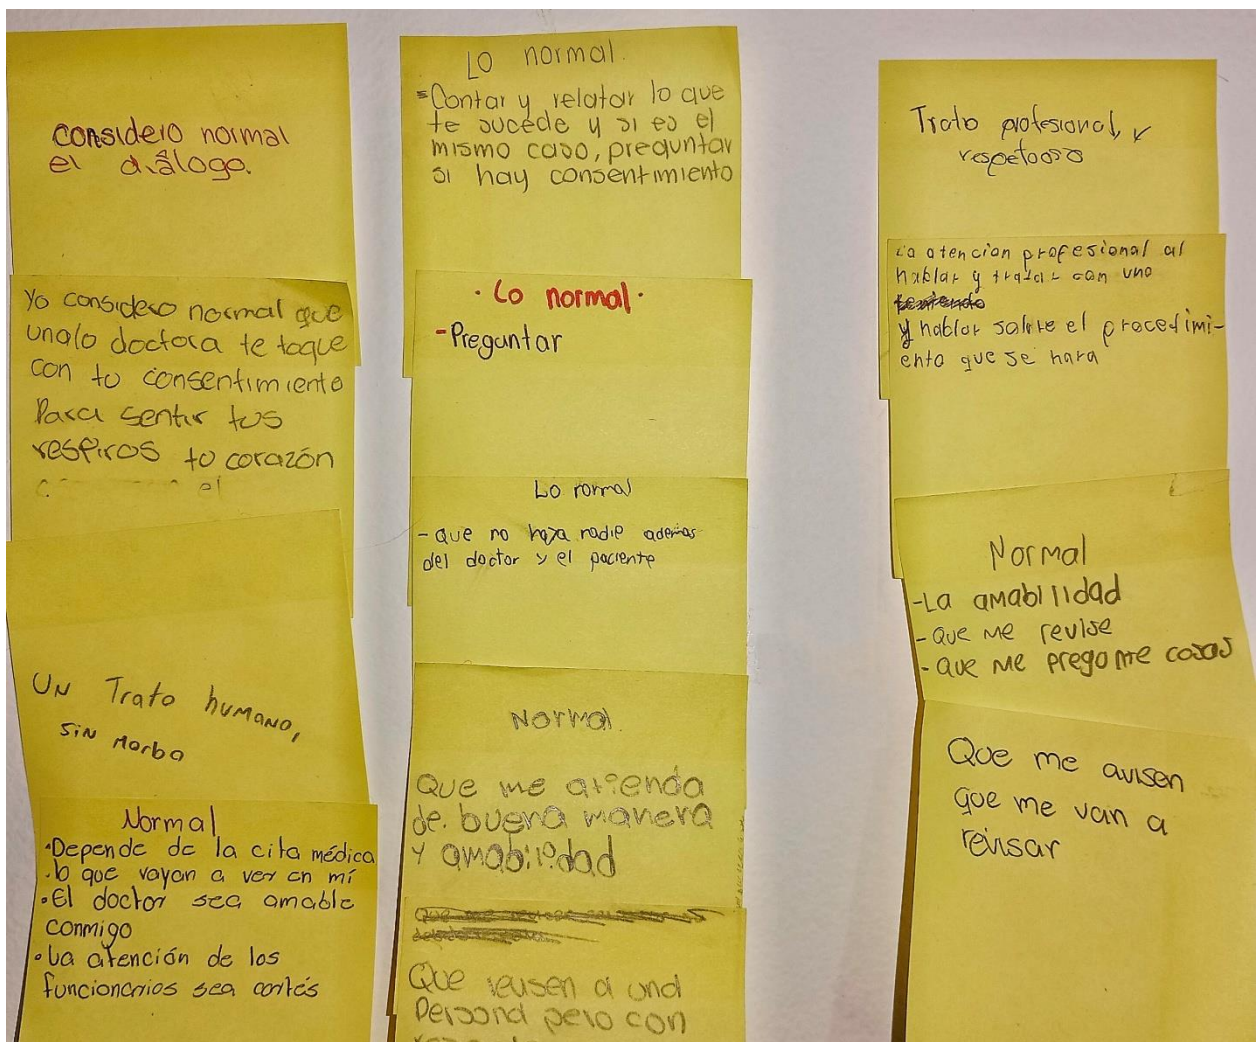 considero normal
el diálogo.
Yo considero normal que
una/o doctora te toque
con tu consentimiento
Para sentir tus
respiros tu corazón
el
UN Trato humano,
SIN Morbo
Normal
•Depende de la cita médica
•lo que vayan a ver en mí
•El doctor sea amable
conmigo
•La atención de los
funcionarios sea cortés
LO normal.
-Contar y relatar lo que
te sucede y si es el
mismo caso, preguntar
si hay consentimiento
• Lo normal •
-Preguntar
Lo normal
-que no haya nadie ademas
del doctor y el paciente
Normal.
Que me atienda
de buena manera
y amabilidad
Que revisen a una
Persona pero con
Trato profesional, y
respetooso
La atencion profesional al
hablar y tratar con uno
y hablar sobre el procedimi-
ento que se hara
Normal
-La amabilidad
-que me revise
-que me pregunte cosas
Que me avisen
que me van a
revisar